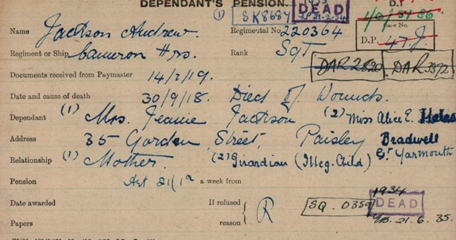 DEPENDANT'S PENSION.
(1) SK8687 DEAD D.T
Name Jackson Andrew. Regimental No. 220364
Regiment or Ship Cameron Hrs. Rank Sgt D.P.
Documents received from Paymaster 14/2/19. DAR DAR
Date and cause of death 30/9/18. Died of Wounds.
Dependant (1) Mrs. Jeanie Jackson (2) Miss Alice E.
Address 35 Gordon Street, Paisley Bradwell
Gt. Yarmouth
Relationship (1) Mother (2) Guardian (Illeg. Child)
Pension Art 21/1 a week from
1934
Date awarded If refused SQ. 0359 DEAD
Papers reason R 21.6.35.